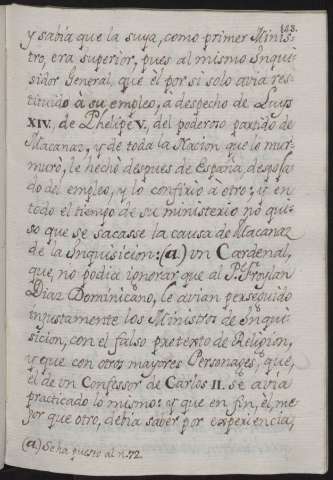 103.
y sabia que la suya, como primer Minis-
tro, era superior, pues al mismo Inqui-
sidor General, que él por si solo avia res-
tituido à su empleo, a despecho de Luys
XIV, de Phelipe V, del poderoso partido de
Macanaz, y de toda la Nacion que lo mur-
murò, le hechò despues de España, despoja-
do del empleo, y lo confirió à otro; y en
todo el tiempo de su ministerio no qui-
so que se sacasse la causa de Macanaz
de la Inquisicion: (a.) vn Cardenal,
que no podia ignorar que al P. Froylan
Diaz Dominicano, le avian perseguido
injustamente los Ministros de Inqui-
sicion, con el falso pretexto de Religion,
y que con otros mayores Personages, que
él de vn Confessor de Carlos II. se avia
practicado lo mismo: y que en fin, èl me-
jor que otro, debia saver por experiencia,
(a) Seha puesto al n. 72